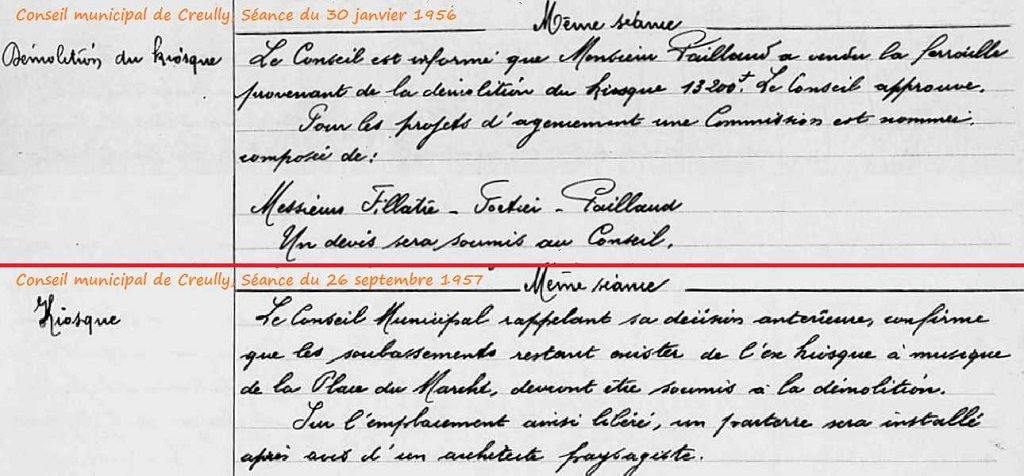 Conseil municipal de Creully, Séance du 30 janvier 1956
Même séance
Démolition du Kiosque
Le Conseil est informé que Monsieur Paillaud a vendu la ferraille
provenant de la démolition du Kiosque 13200f. Le Conseil approuve.
Pour les projets d'agencement une Commission est nommée.
composée de :
Messieurs Fillatre - - Paillaud
Un devis sera soumis au Conseil.
Conseil municipal de Creully, Séance du 26 septembre 1957
Même séance
Kiosque
Le Conseil Municipal rappelant sa décision antérieure, confirme
que les soubassements restant exister de l'ex kiosque à musique
de la Place du Marché, devront être soumis à la démolition.
Sur l'emplacement ainsi libéré, un parterre sera installé
après avis d'un architecte paysagiste.